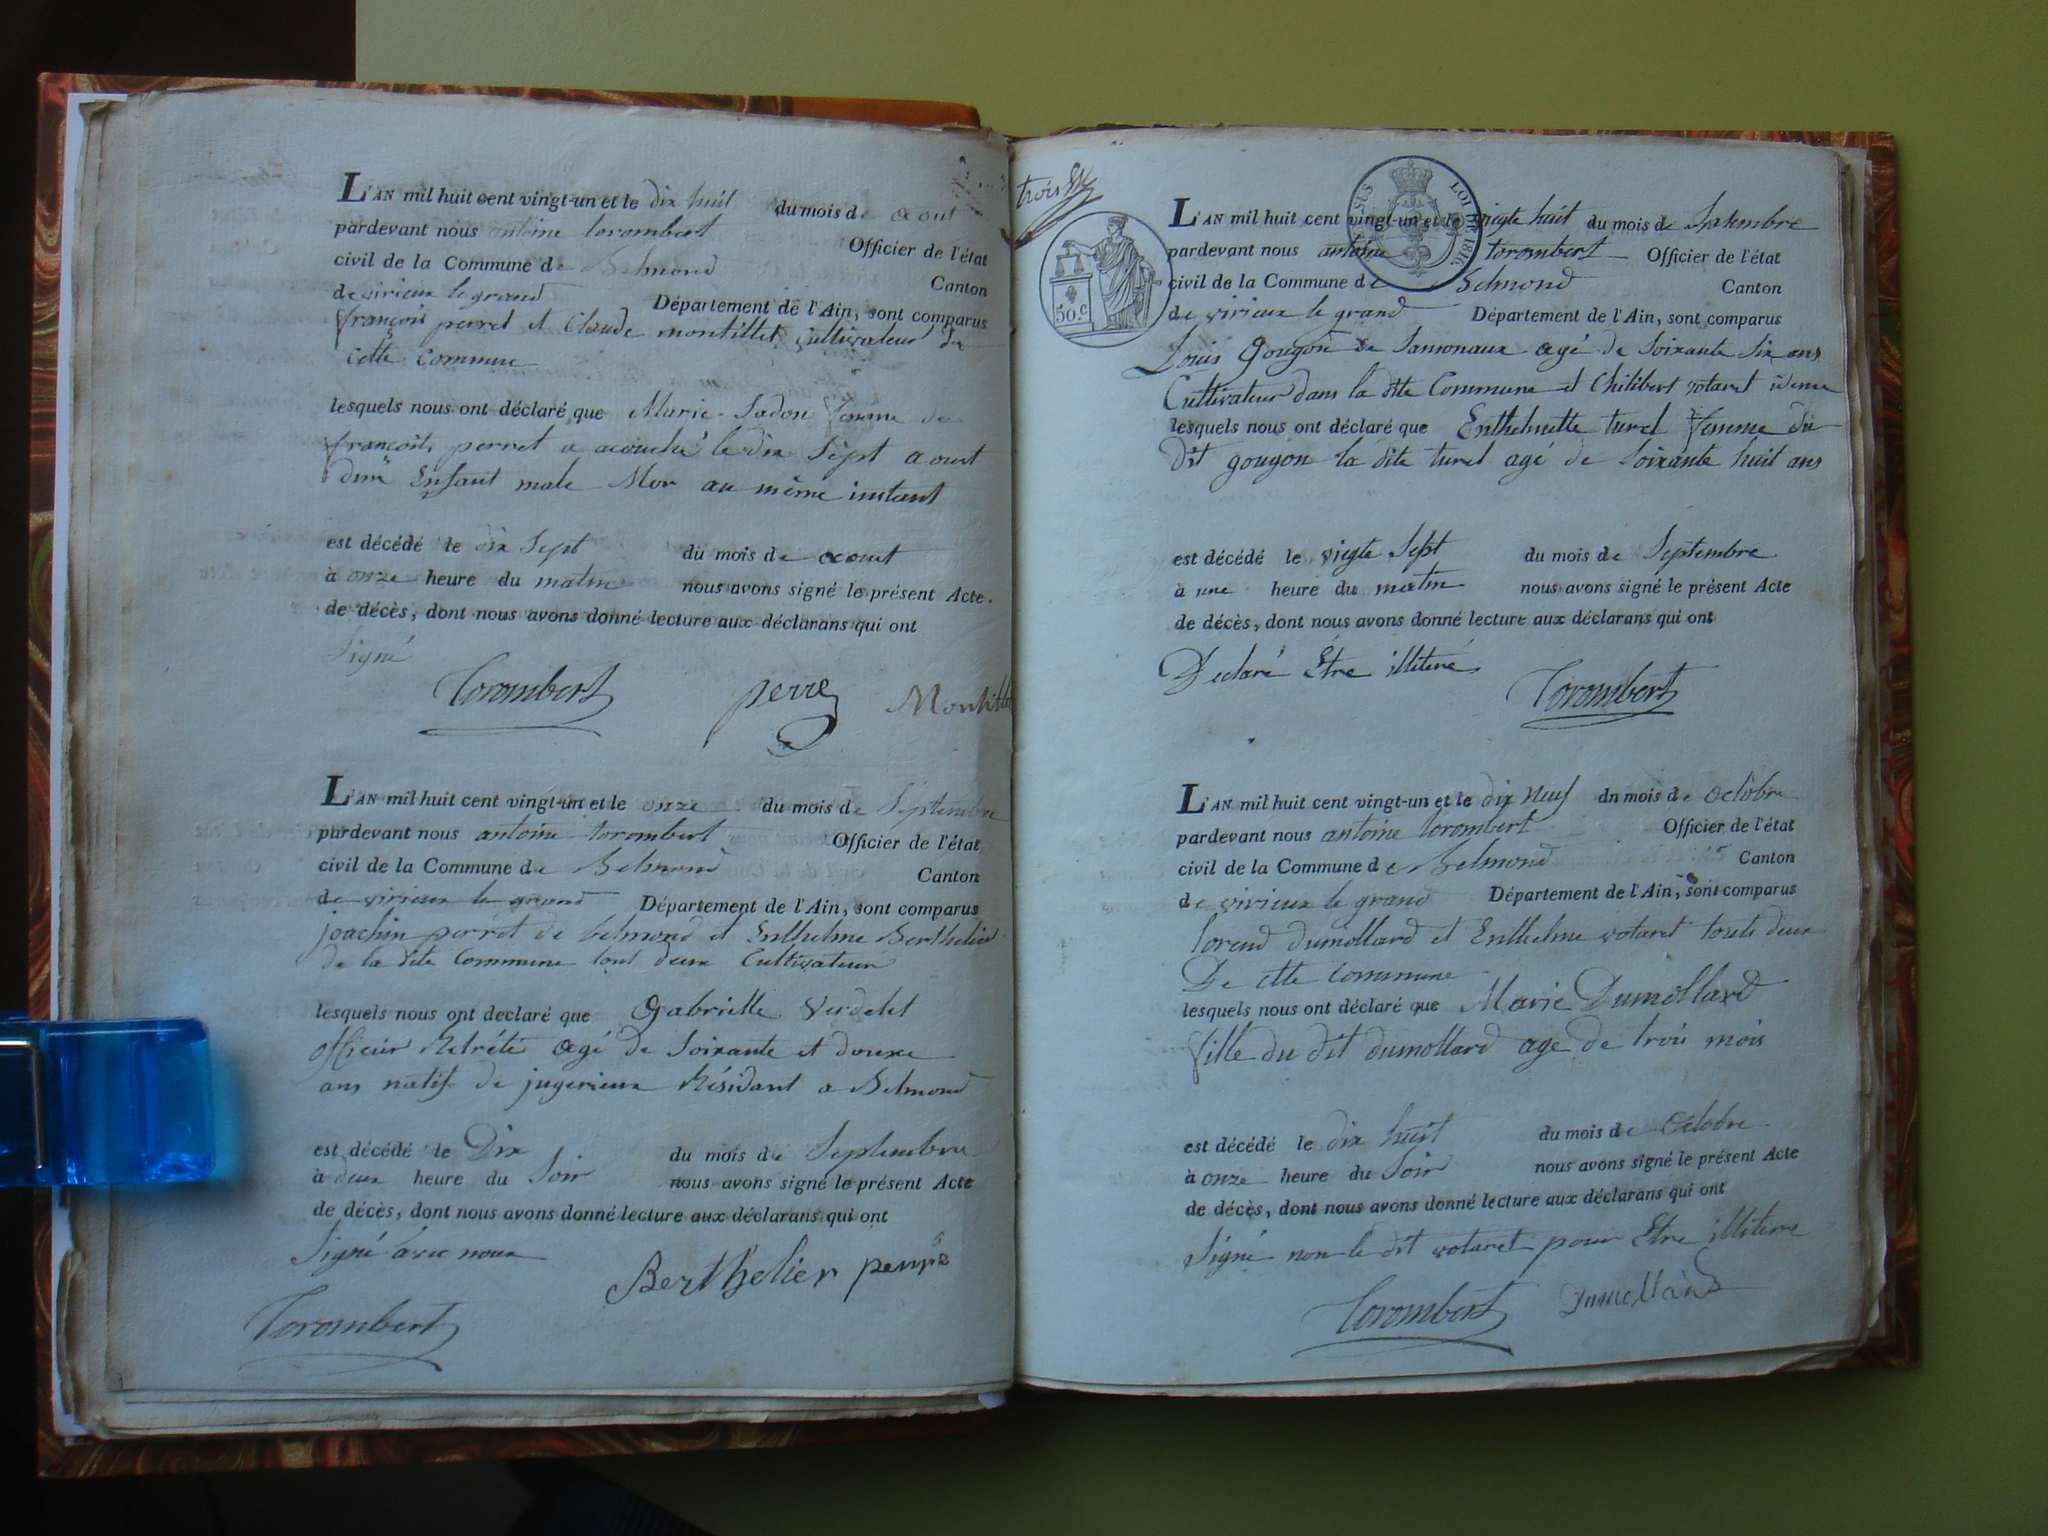 L'AN mil huit cent vingt-un et le dix huit du mois de aout
pardevant nous antoine torombert Officier de l'état
civil de la Commune de Belmond Canton
de virieux le grand Département de l'Ain, sont comparus
françois perret et Claude montillet cultivateur de
cette commune
lesquels nous ont déclaré que Marie femme de
françois perret a acouché le dix Sept aout
dun Enfant male Mor au même instant
est décédé le dix Sept du mois de aout
à onze heure du matin nous avons signé le présent Acte.
de décès, dont nous avons donné lecture aux déclarans qui ont
Signé
Torombert perre Montille
L'AN mil huit cent vingt-un et le onze du mois de Septembre
pardevant nous antoine torombert Officier de l'état
civil de la Commune de Belmond Canton
de virieux le grand Département de l'Ain, sont comparus
joachin perret de belmond et Enthelme Berthelier
de la dite Commune tout deux Cultivateur
lesquels nous ont declaré que Gabrielle Verdelet
officier Retrété agé de Soixante et douze
ans natif de jugerieux Résidant a Belmond
est décédé le Dix du mois de Septembre
à deux heure du Soir nous avons signé le présent Acte
de décès, dont nous avons donné lecture aux déclarans qui ont
Signé avec nous
Berthelier
Torombert
trois
50.c
LOUIS
L'AN mil huit cent vingt-un et le viegte huit du mois de Septembre
pardevant nous antoine torombert Officier de l'état
civil de la Commune de Belmond Canton
de virieux le grand Département de l'Ain, sont comparus
Louis Gougon de Samonaux agé de Soixante Six ans
Cultivateur dans la dite Commune et Chilibert votaret ideme
lesquels nous ont déclaré que Enthelmette turel femme du
dit gougon la dite turel agé de Soixante huit ans
est décédé le viegte Sept du mois de Septembre
à une heure du matin nous avons signé le présent Acte
de décès, dont nous avons donné lecture aux déclarans qui ont
Declaré Etre illiteré
Torombert
L'AN mil huit cent vingt-un et le dix Neuf dn mois de octobre
pardevant nous antoine torombert Officier de l'état
civil de la Commune de Belmond Canton
de virieux le grand Département de l'Ain, sont comparus
lorend dumollard et Enthelme votaret touts deux
De cette commune
lesquels nous ont déclaré que Marie Dumollard
fille du dit dumollard age de trois mois
est décédé le dix huit du mois de octobre
à onze heure du Soir nous avons signé le présent Acte
de décès, dont nous avons donné lecture aux déclarans qui ont
Signé non le dit votaret pour Etre illitere
Torombert Dumollard